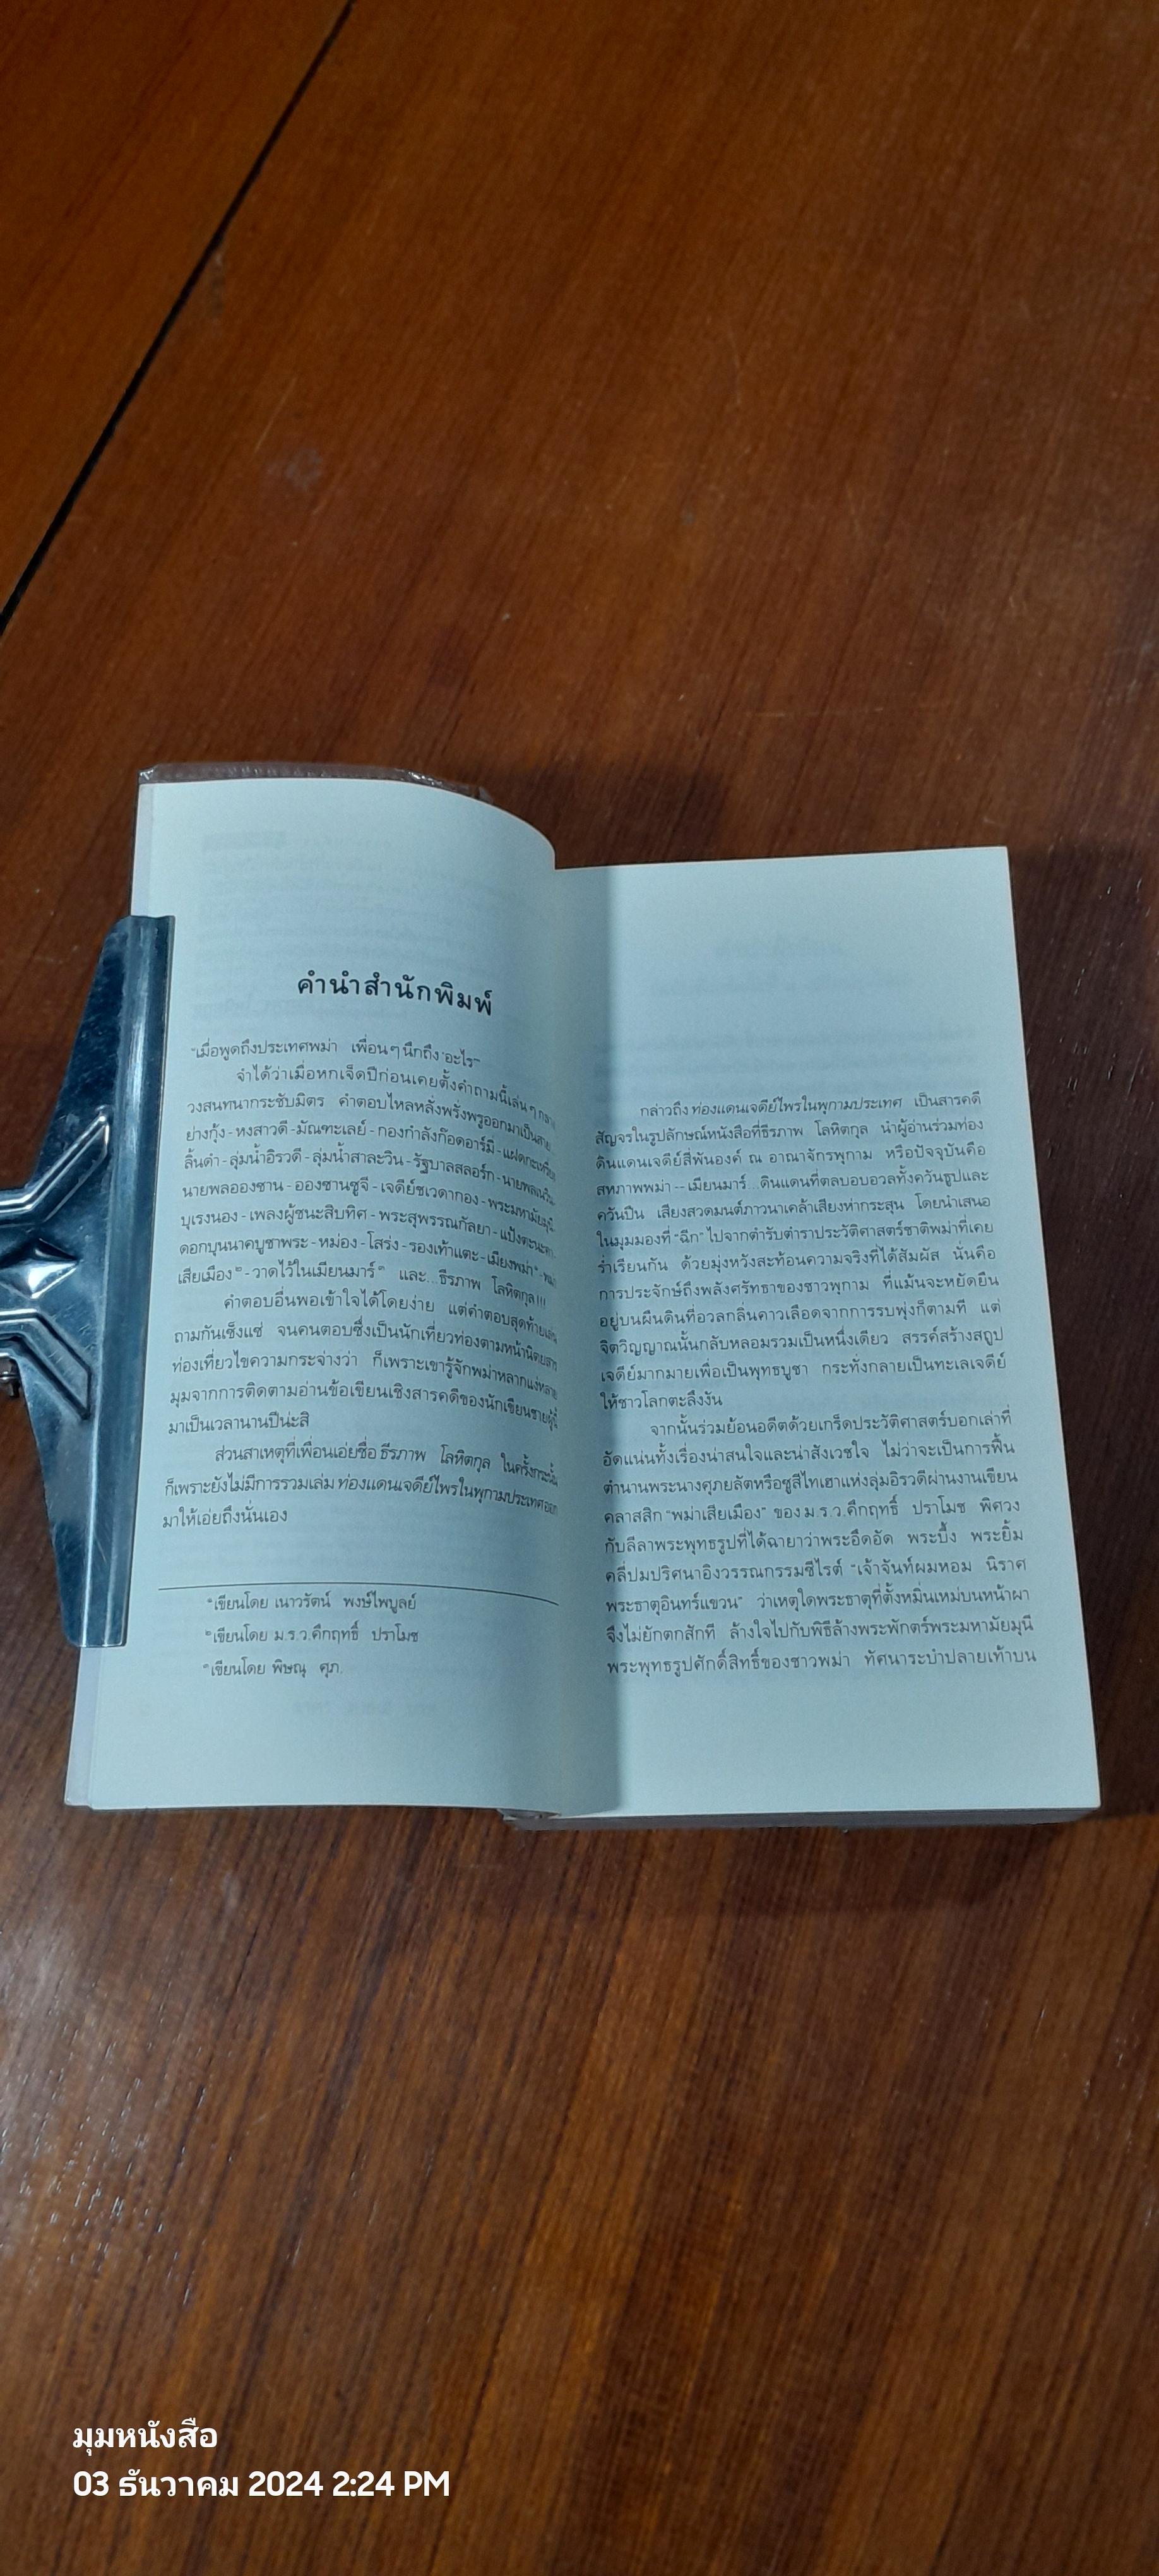 คำนำสำนักพิมพ์
"เมื่อพูดถึงประเทศพม่า เพื่อนๆ นึกถึงอะไร"
จำได้ว่าเมื่อหกเจ็ดปีก่อนเคยตั้งคำถามนี้เล่นๆ
วงสนทนากระชับมิตร คำตอบไหลหลั่งพรั่งพรูออกมาเป็นสาย
ย่างกุ้ง - หงสาวดี - มัณฑะเลย์ - กองกำลังก๊อดอาร์มี่ - แฝดกะเหรี่ยง
ลิ้นดำ - ลุ่มน้ำอิรวดี - ลุ่มน้ำสาละวิน - รัฐบาลสลอร์ก - นายพลเนวิน
นายพลอองซาน - อองซานซูจี - เจดีย์ชเวดากอง - พระมหามัยมุนี
บุเรงนอง - เพลงผู้ชนะสิบทิศ - พระสุพรรณกัลยา - แป้งตะนะคา
ดอกบุนนาคบูชาพระ - หม่อง - โสร่ง - รองเท้าแตะ - เมียงพม่า๑ - พม่า
เสียเมือง๒ - วาดไว้ในเมียนมาร์๓ และ...ธีรภาพ โลหิตกุล!!!
คำตอบอื่นพอเข้าใจได้โดยง่าย แต่คำตอบสุดท้าย
ถามกันเซ็งแซ่ จนคนตอบซึ่งเป็นนักเที่ยวท่องตามหน้านิตยสาร
ท่องเที่ยวไขความกระจ่างว่า ก็เพราะเขารู้จักพม่าหลากแง่หลาย
มุมจากการติดตามอ่านข้อเขียนเชิงสารคดีของนักเขียนชายผู้นี้
มาเป็นเวลานานปีน่ะสิ
ส่วนสาเหตุที่เพื่อนเอ่ยชื่อ ธีรภาพ โลหิตกุล ในครั้งกระนั้น
ก็เพราะยังไม่มีการรวมเล่ม ท่องแดนเจดีย์ไพรในพุกามประเทศ ออก
มาให้เอ่ยถึงนั่นเอง
๑ เขียนโดย เนาวรัตน์ พงษ์ไพบูลย์
๒ เขียนโดย ม.ร.ว.คึกฤทธิ์ ปราโมช
๓ เขียนโดย พิษณุ ศุภ.
กล่าวถึง ท่องแดนเจดีย์ไพรในพุกามประเทศ เป็นสารคดี
สัญจรในรูปลักษณ์หนังสือที่ธีรภาพ โลหิตกุล นำผู้อ่านร่วมท่อง
ดินแดนเจดีย์สี่พันองค์ ณ อาณาจักรพุกาม หรือปัจจุบันคือ
สหภาพพม่า -- เมียนมาร์...ดินแดนที่ตลบอบอวลทั้งควันธูปและ
ควันปืน เสียงสวดมนต์ภาวนาเคล้าเสียงห่ากระสุน โดยนำเสนอ
ในมุมมองที่ "ฉีก" ไปจากตำรับตำราประวัติศาสตร์ชาติพม่าที่เคย
ร่ำเรียนกัน ด้วยมุ่งหวังสะท้อนความจริงที่ได้สัมผัส นั่นคือ
การประจักษ์ถึงพลังศรัทธาของชาวพุกาม ที่แม้นจะหยัดยืน
อยู่บนผืนดินที่อวลกลิ่นคาวเลือดจากการรบพุ่งก็ตามที แต่
จิตวิญญาณนั้นกลับหลอมรวมเป็นหนึ่งเดียว สรรค์สร้างสถูป
เจดีย์มากมายเพื่อเป็นพุทธบูชา กระทั่งกลายเป็นทะเลเจดีย์
ให้ชาวโลกตะลึงงัน
จากนั้นร่วมย้อนอดีตด้วยเกร็ดประวัติศาสตร์บอกเล่าที่
อัดแน่นทั้งเรื่องน่าสนใจและน่าสังเวชใจ ไม่ว่าจะเป็นการฟื้น
ตำนานพระนางศุภยลัตหรือซูสีไทเฮาแห่งลุ่มอิรวดีผ่านงานเขียน
คลาสสิก "พม่าเสียเมือง" ของ ม.ร.ว.คึกฤทธิ์ ปราโมช พิศวง
กับลีลาพระพุทธรูปที่ได้ฉายาว่าพระอึดอัด พระบึ้ง พระยิ้ม
คลี่ปมปริศนาอิงวรรณกรรมซีไรต์ "เจ้าจันท์ผมหอม นิราศ
พระธาตุอินทร์แขวน" ว่าเหตุใดพระธาตุที่ตั้งหมิ่นเหม่บนหน้าผา
จึงไม่ยักตกสักที ล้างใจไปกับพิธีล้างพระพักตร์พระมหามัยมุนี
พระพุทธรูปศักดิ์สิทธิ์ของชาวพม่า ทัศนาระบำปลายเท้าบน
มุมหนังสือ
03 ธันวาคม 2024 2:24 PM